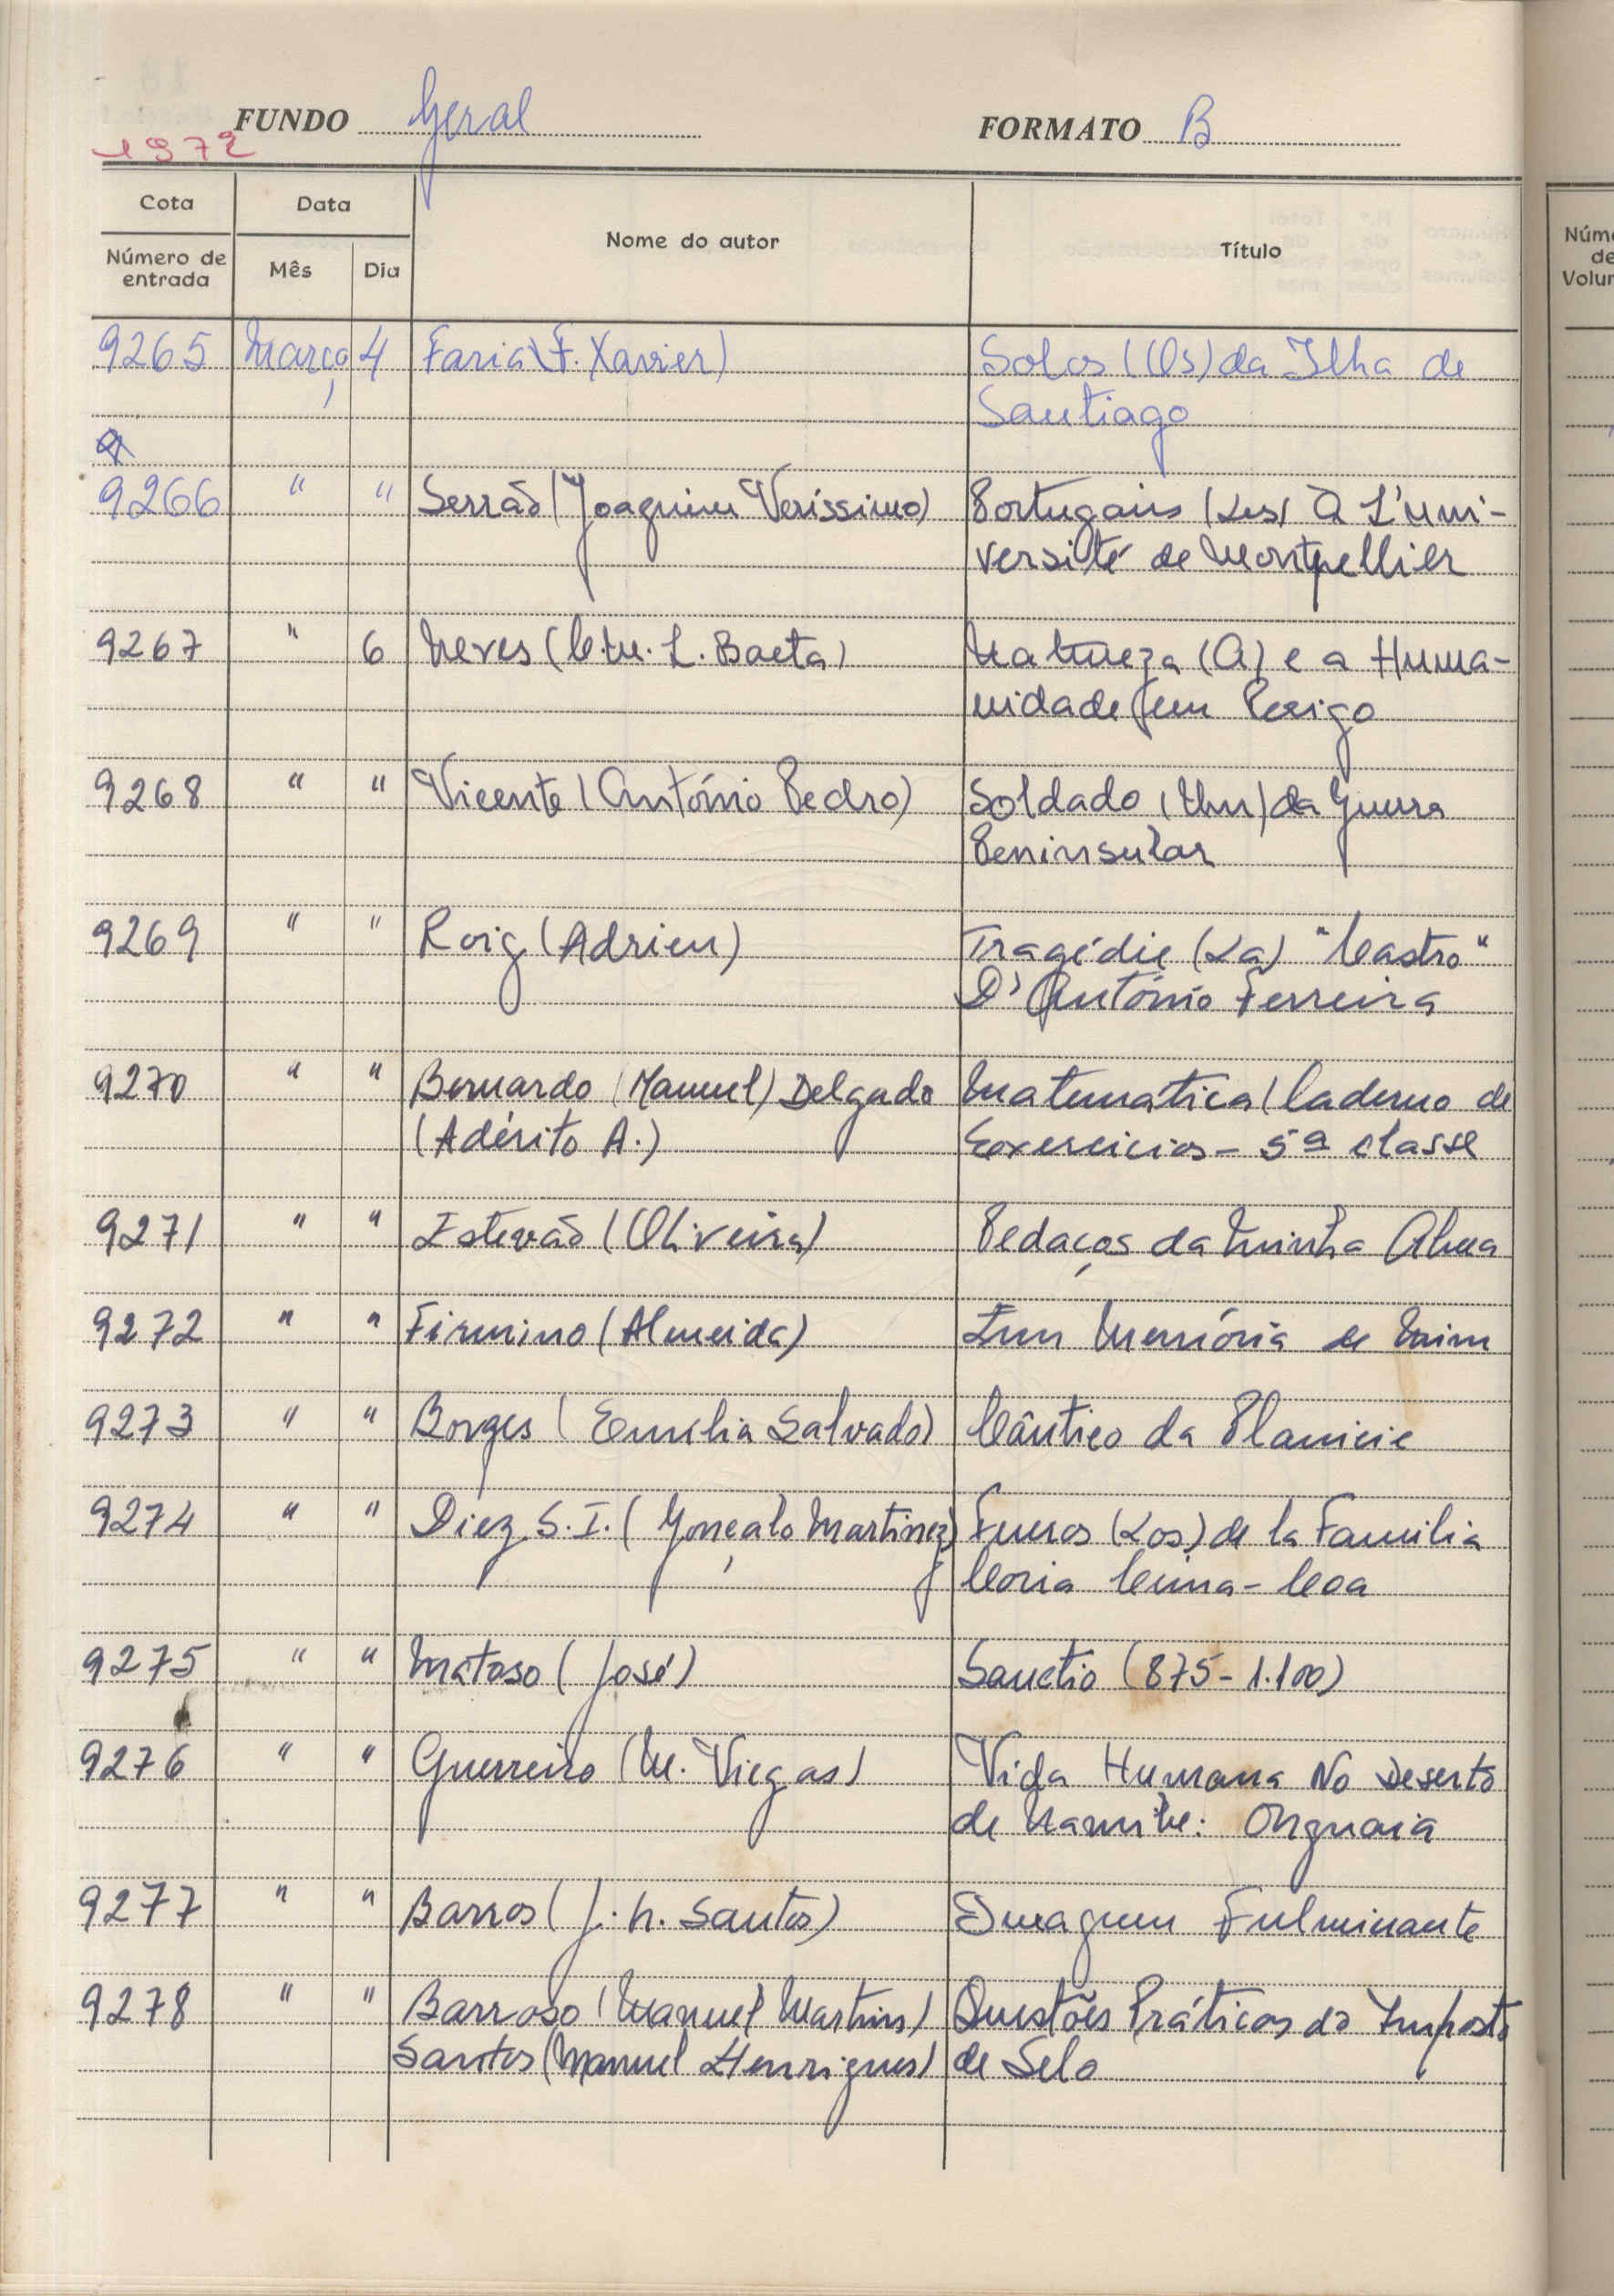 FUNDO Geral FORMATO B
1972
Cota Data Nome do autor Título
Número de entrada Mês Dia
9265 Março 4 Faria (F. Xavier) Solos (Os) da Ilha de
Santiago
9266 " " Serrão (Joaquim Veríssimo) Portugais (Les) À L'uni-
versité de Montpellier
9267 " 6 Neves (C.M. L. Baeta) Natureza (A) e a Huma-
nidade em Perigo
9268 " " Vicente (António Pedro) Soldado (Um) da Guerra
Peninsular
9269 " " Roig (Adrien) Tragédie (La) "Castro"
D'António Ferreira
9270 " " Bernardo (Manuel) Delgado Matematica (Caderno de
(Adérito A.) Exercicios - 5ª classe
9271 " " Estevão (Oliveira) Pedaços da Minha Alma
9272 " " Firmino (Almeida) Em Memória de Mim
9273 " " Borges (Emilia Salvado) Cântico da Planicie
9274 " " Diez S.I. (Gonçalo Martinez) Fueros (Los) de la Familia
Coria Cima-Coa
9275 " " Matoso (José) Sanctio (875-1.100)
9276 " " Guerreiro (M. Viegas) Vida Humana No Deserto
de Namibe: Onguaia
9277 " " Barros (J. h. Santos) Imagem Fulminante
9278 " " Barroso (Manuel Martins) Questões Práticas do Imposto
Santos (Manuel Henriques) de Selo
Núm
de
Volu